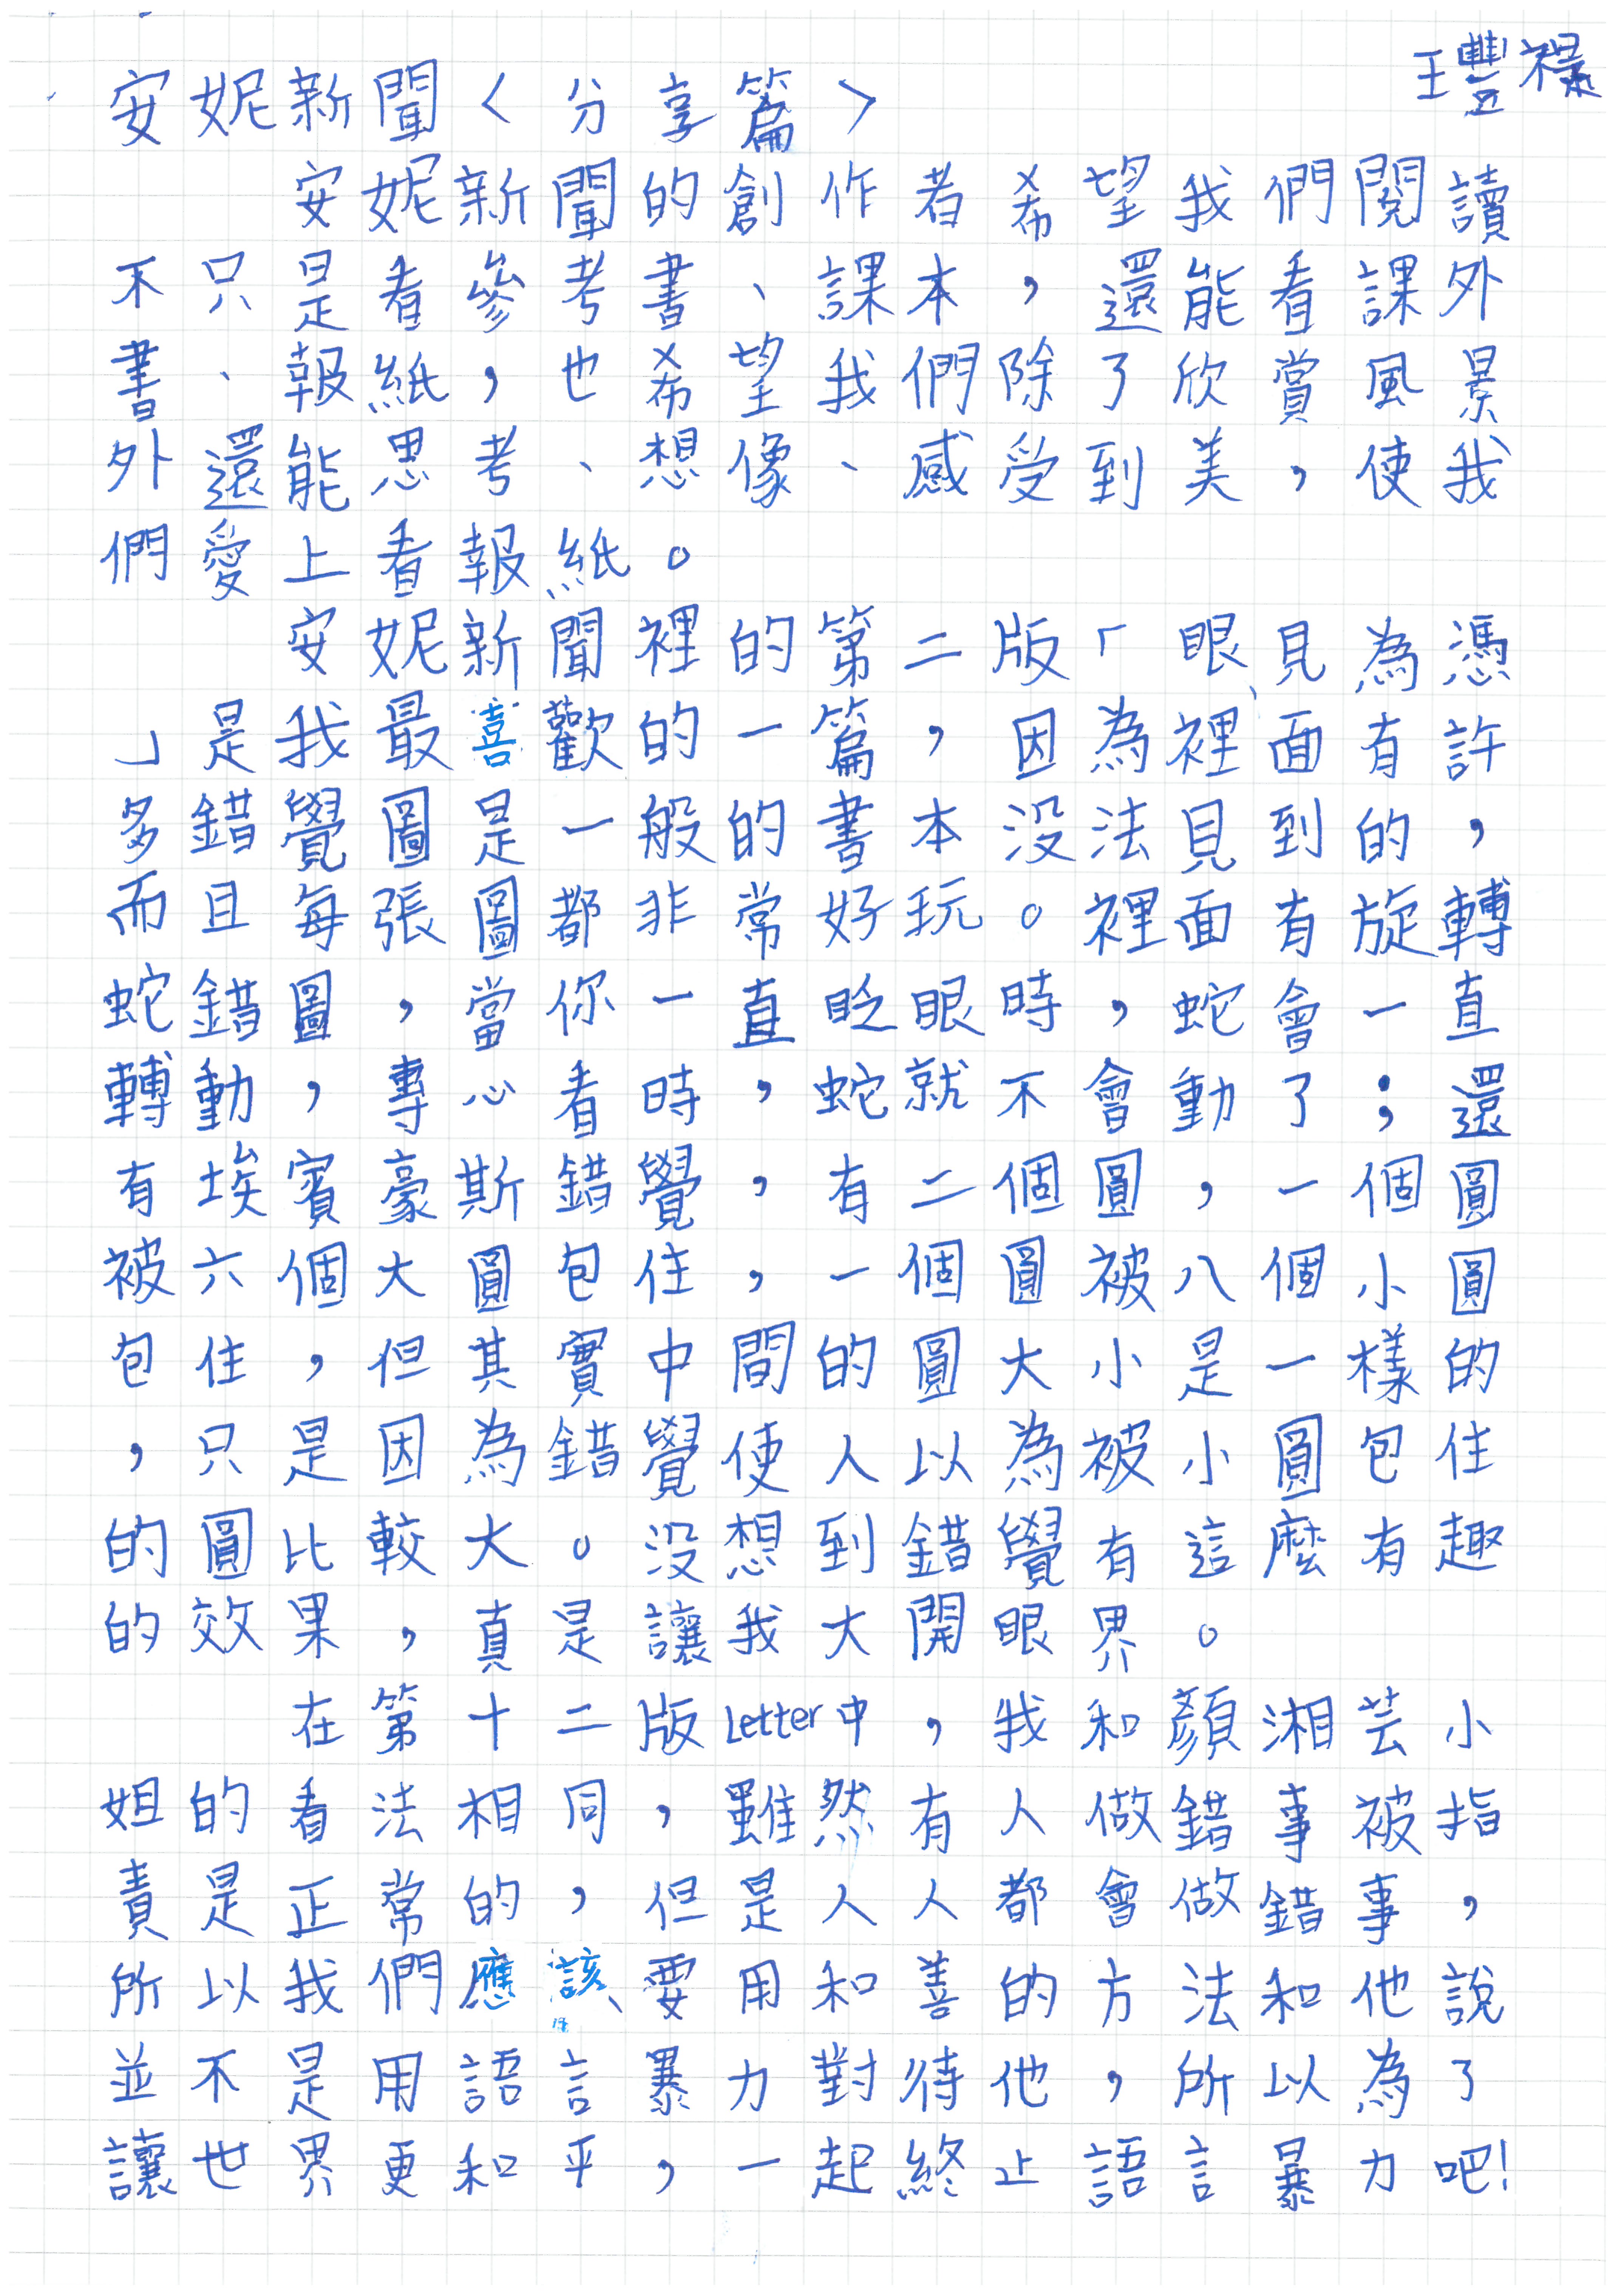 王豐祿
安妮新聞〈分享篇〉
安妮新聞的創作者希望我們閱讀
不只是看參考書、課本，還能看課外
書、報紙，也希望我們除了欣賞風景
外還能思考、想像、感受到美，使我
們愛上看報紙。
安妮新聞裡的第二版「眼見為憑
」是我最喜歡的一篇，因為裡面有許
多錯覺圖是一般的書本沒法見到的，
而且每張圖都非常好玩。裡面有旋轉
蛇錯圖，當你一直眨眼時，蛇會一直
轉動，專心看時，蛇就不會動了；還
有埃賓豪斯錯覺，有二個圓，一個圓
被六個大圓包住，一個圓被八個小圓
包住，但其實中間的圓大小是一樣的
，只是因為錯覺使人以為被小圓包住
的圓比較大。沒想到錯覺有這麼有趣
的效果，真是讓我大開眼界。
在第十二版Letter中，我和顏湘芸小
姐的看法相同，雖然有人做錯事被指
責是正常的，但是人人都會做錯事，
所以我們應該要用和善的方法和他說
並不是用語言暴力對待他，所以為了
讓世界更和平，一起終止語言暴力吧!